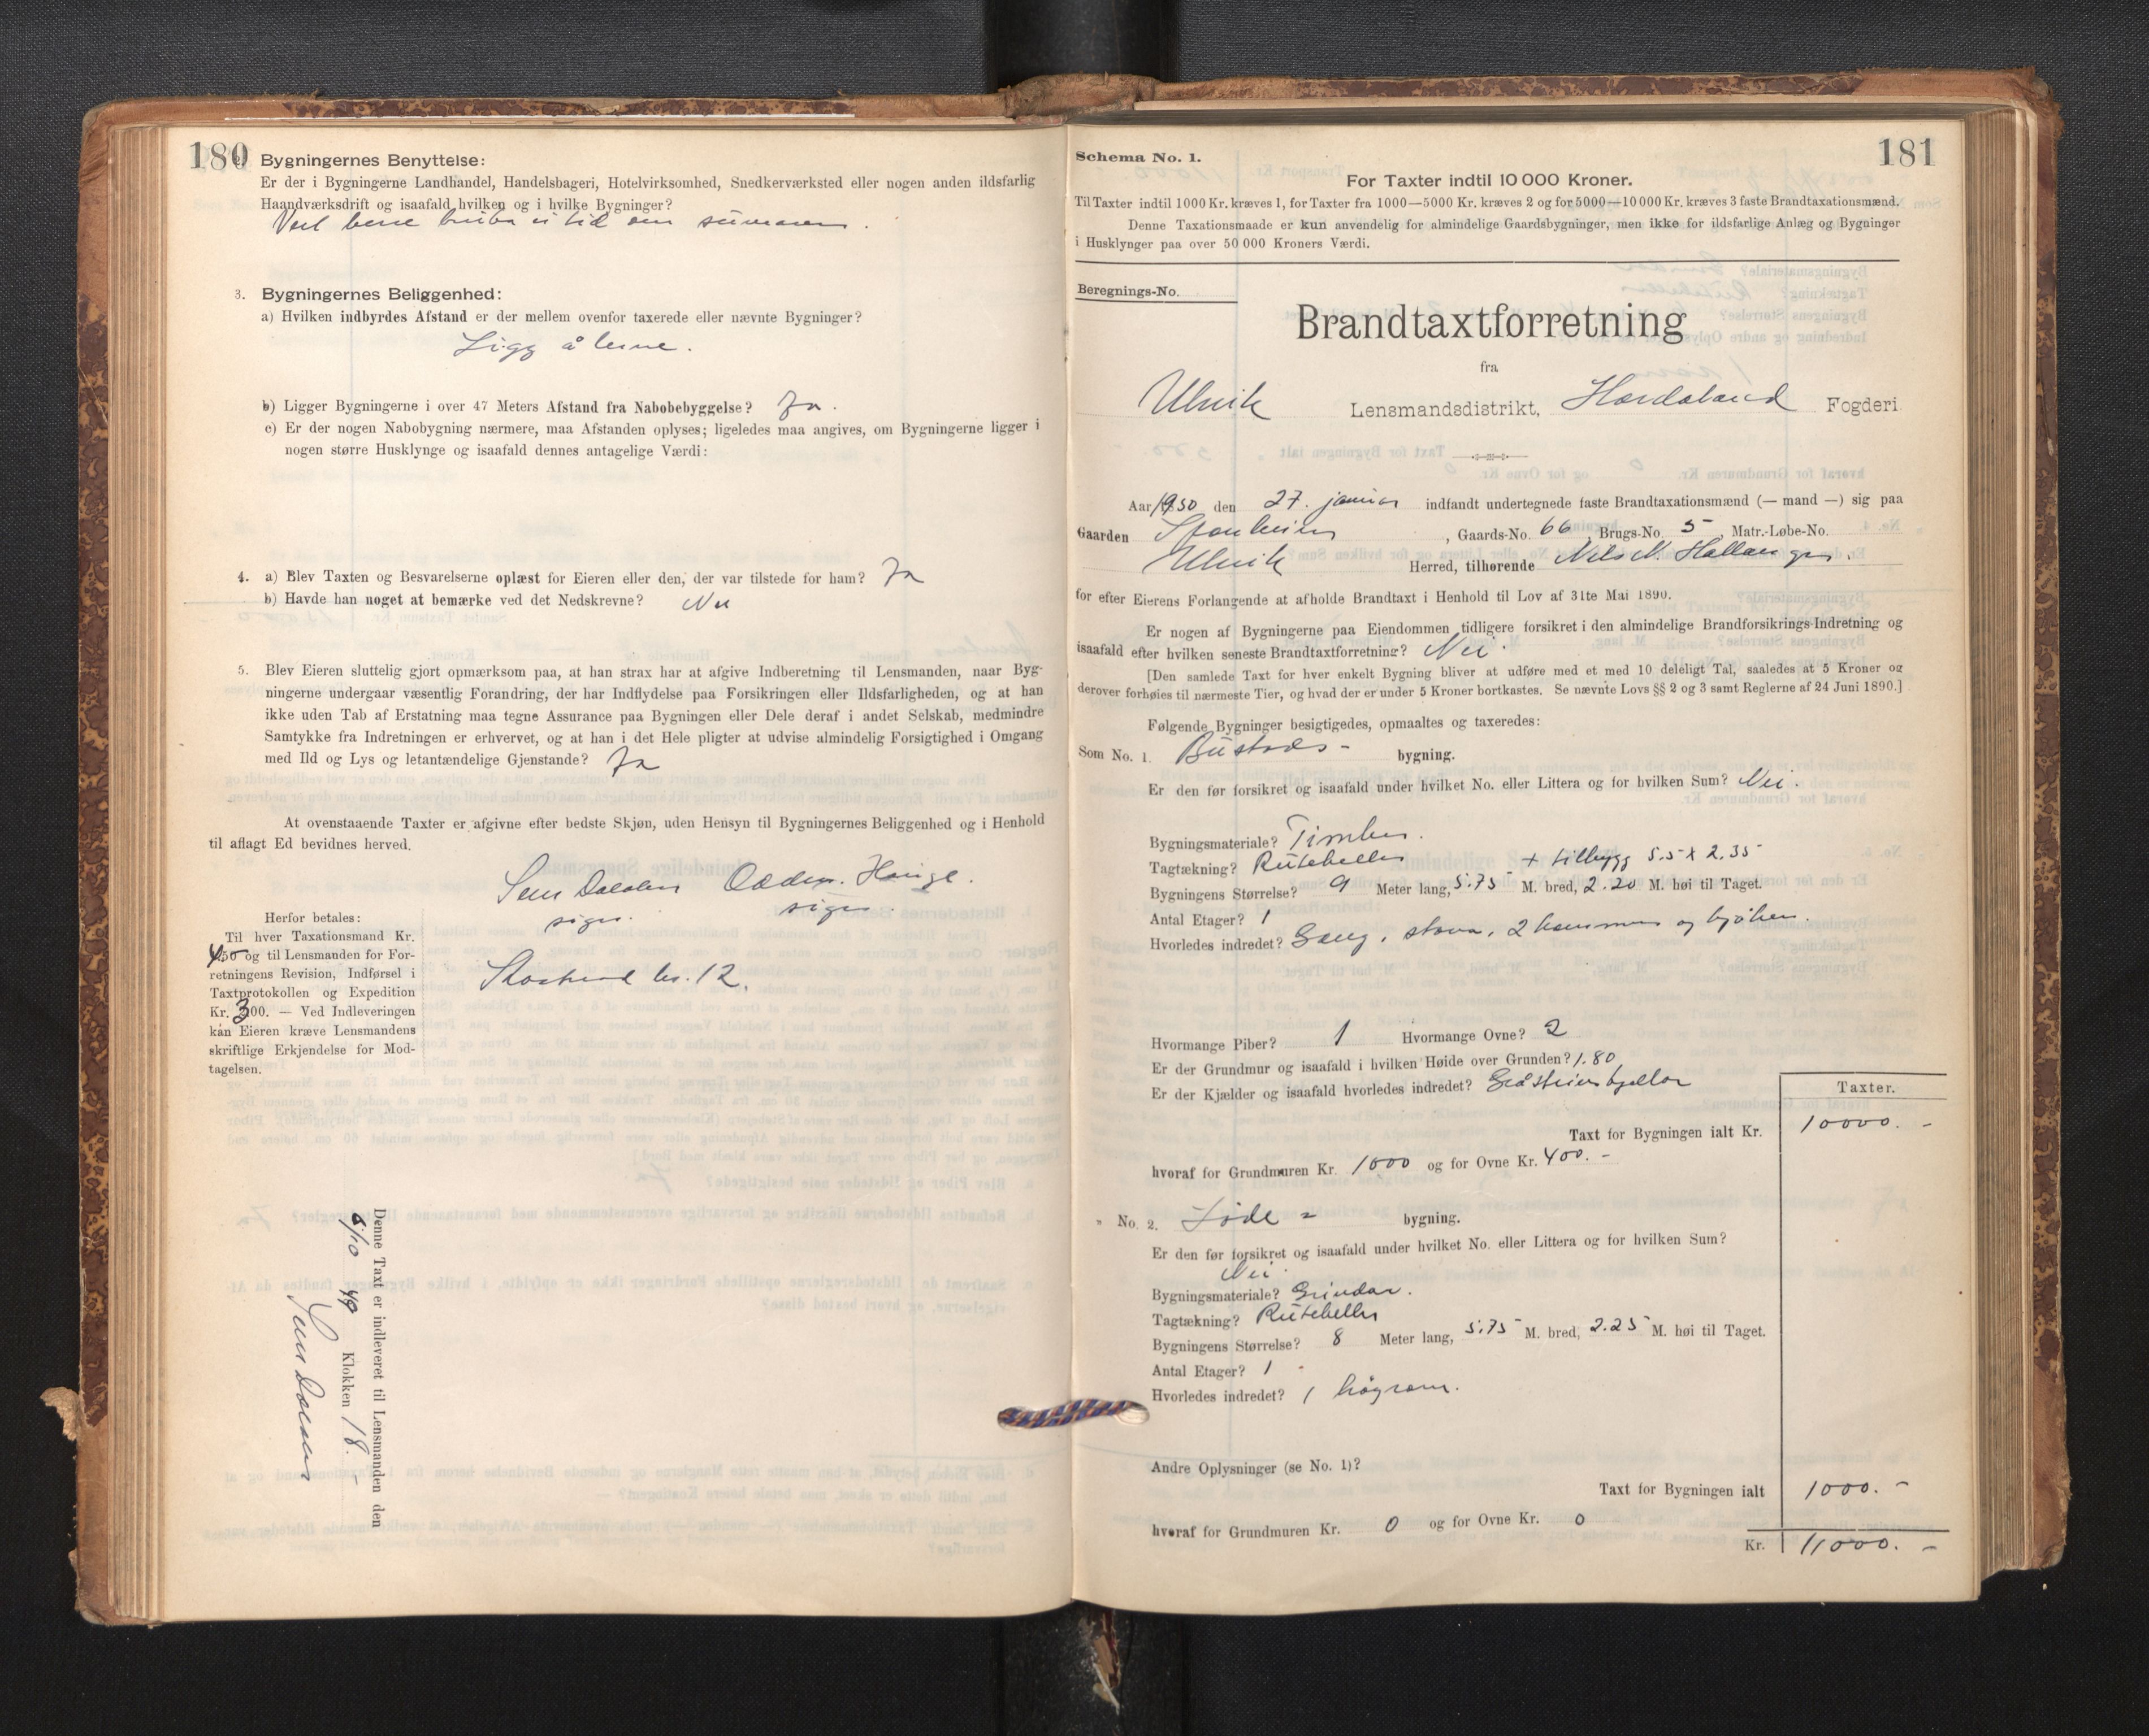 180
Bygningernes Benyttelse:
Er der i Bygningerne Landhandel, Handelsbageri, Hotelvirksomhed, Snedkerværksted eller nogen anden ildsfarlig
Haandværksdrift og isaafald hvilken og i hvilke Bygninger?
Vert bere bruka ei tid om sumaren.
3. Bygningernes Beliggenhed:
a) Hvilken indbyrdes Afstand er der mellem ovenfor taxerede eller nævnte Bygninger?
Ligg åleine.
b) Ligger Bygningerne i over 47 Meters Afstand fra Nabobebyggelse? Ja.
c) Er der nogen Nabobygning nærmere, maa Afstanden oplyses; ligeledes maa angives, om Bygningerne ligger i
nogen større Husklynge og isaafald dennes antagelige Værdi:
4. a) Blev Taxten og Besvarelserne oplæst for Eieren eller den, der var tilstede for ham? Ja
b) Havde han noget at bemærke ved det Nedskrevne? Nei
5. Blev Eieren sluttelig gjort opmærksom paa, at han strax har at afgive Indberetning til Lensmanden, naar Byg-
ningerne undergaar væsentlig Forandring, der har Indflydelse paa Forsikringen eller Ildsfarligheden, og at han
ikke uden Tab af Erstatning maa tegne Assurance paa Bygningen eller Dele deraf i andet Selskab, medmindre
Samtykke fra Indretningen er erhvervet, og at han i det Hele pligter at udvise almindelig Forsigtighed i Omgang
med Ild og Lys og letantændelige Gjenstande? Ja
At ovenstaaende Taxter er afgivne efter bedste Skjøn, uden Hensyn til Bygningernes Beliggenhed og i Henhold
til aflagt Ed bevidnes herved.
Odd Hauge.
sign. sign.
kr. 12.
Herfor betales:
Til hver Taxationsmand Kr.
450 og til Lensmanden for For-
retningens Revision, Indførsel i
Taxtprotokollen og Expedition
Kr. 3 00. — Ved Indleveringen
kan Eieren kræve Lensmandens
skriftlige Erkjendelse for Mod-
tagelsen.
Denne Taxt er indleveret til Lensmanden den
/10 49 Klokken 18.-
181
Schema No. 1.
For Taxter indtil 10 000 Kroner.
Til Taxter indtil 1000 Kr. kræves 1, for Taxter fra 1000—5000 Kr. kræves 2 og for 5000—10 000 Kr. kræves 3 faste Brandtaxationsmænd.
Denne Taxationsmaade er kun anvendelig for almindelige Gaardsbygninger, men ikke for ildsfarlige Anlæg og Bygninger
i Husklynger paa over 50 000 Kroners Værdi.
Beregnings-No.
Brandtaxtforretning
fra
Ulvik Lensmandsdistrikt, Hordaland Fogderi
Aar 1950 den 27. januar indfandt undertegnede faste Brandtaxationsmænd (— mand —) sig paa
Gaarden , Gaards-No. 66 Brugs-No. 5 Matr.-Løbe-No.
Ulvik Herred, tilhørende Nils N. Hallanger.
for efter Eierens Forlangende at afholde Brandtaxt i Henhold til Lov af 31te Mai 1890.
Er nogen af Bygningerne paa Eiendommen tidligere forsikret i den almindelige Brandforsikrings-Indretning og
isaafald efter hvilken seneste Brandtaxtforretning? Nei.
[Den samlede Taxt for hver enkelt Bygning bliver at udføre med et med 10 deleligt Tal, saaledes at 5 Kroner og
derover forhøies til nærmeste Tier, og hvad der er under 5 Kroner bortkastes. Se nævnte Lovs §§ 2 og 3 samt Reglerne af 24 Juni 1890.]
Følgende Bygninger besigtigedes, opmaaltes og taxeredes:
Som No. 1. Bustads- bygning.
Er den før forsikret og isaafald under hvilket No. eller Littera og for hvilken Sum? Nei.
Bygningsmateriale? Timber.
Tagtækning? Ruteheller + tilbygg 5.5 x 2.35
Bygningens Størrelse? 9 Meter lang, 5.75 M. bred, 2.20 M. høi til Taget.
Antal Etager? 1
Hvorledes indredet? Gang, stova, 2 kammer og kjøken.
Hvormange Piber? 1 Hvormange Ovne? 2
Er der Grundmur og isaafald i hvilken Høide over Grunden? 1.80
Er der Kjælder og isaafald hvorledes indredet? Gråsteinskjellar
Taxter.
Taxt for Bygningen ialt Kr. 10000.-
hvoraf for Grundmuren Kr. 1000 og for Ovne Kr. 400.-
" No. 2. Løde- bygning.
Er den før forsikret og isaafald under hvilket No. eller Littera og for hvilken Sum?
Nei.
Bygningsmateriale? Grindar.
Tagtækning? Ruteheller
Bygningens Størrelse? 8 Meter lang, 5.75 M. bred, 2.25 M. høi til Taget.
Antal Etager? 1
Hvorledes indredet? 1 høyrom.
Andre Oplysninger (se No. 1)?
Taxt for Bygningen ialt 1000.-
hvoraf for Grundmuren Kr. 0 og for Ovne Kr. 0
Kr. 11000.-